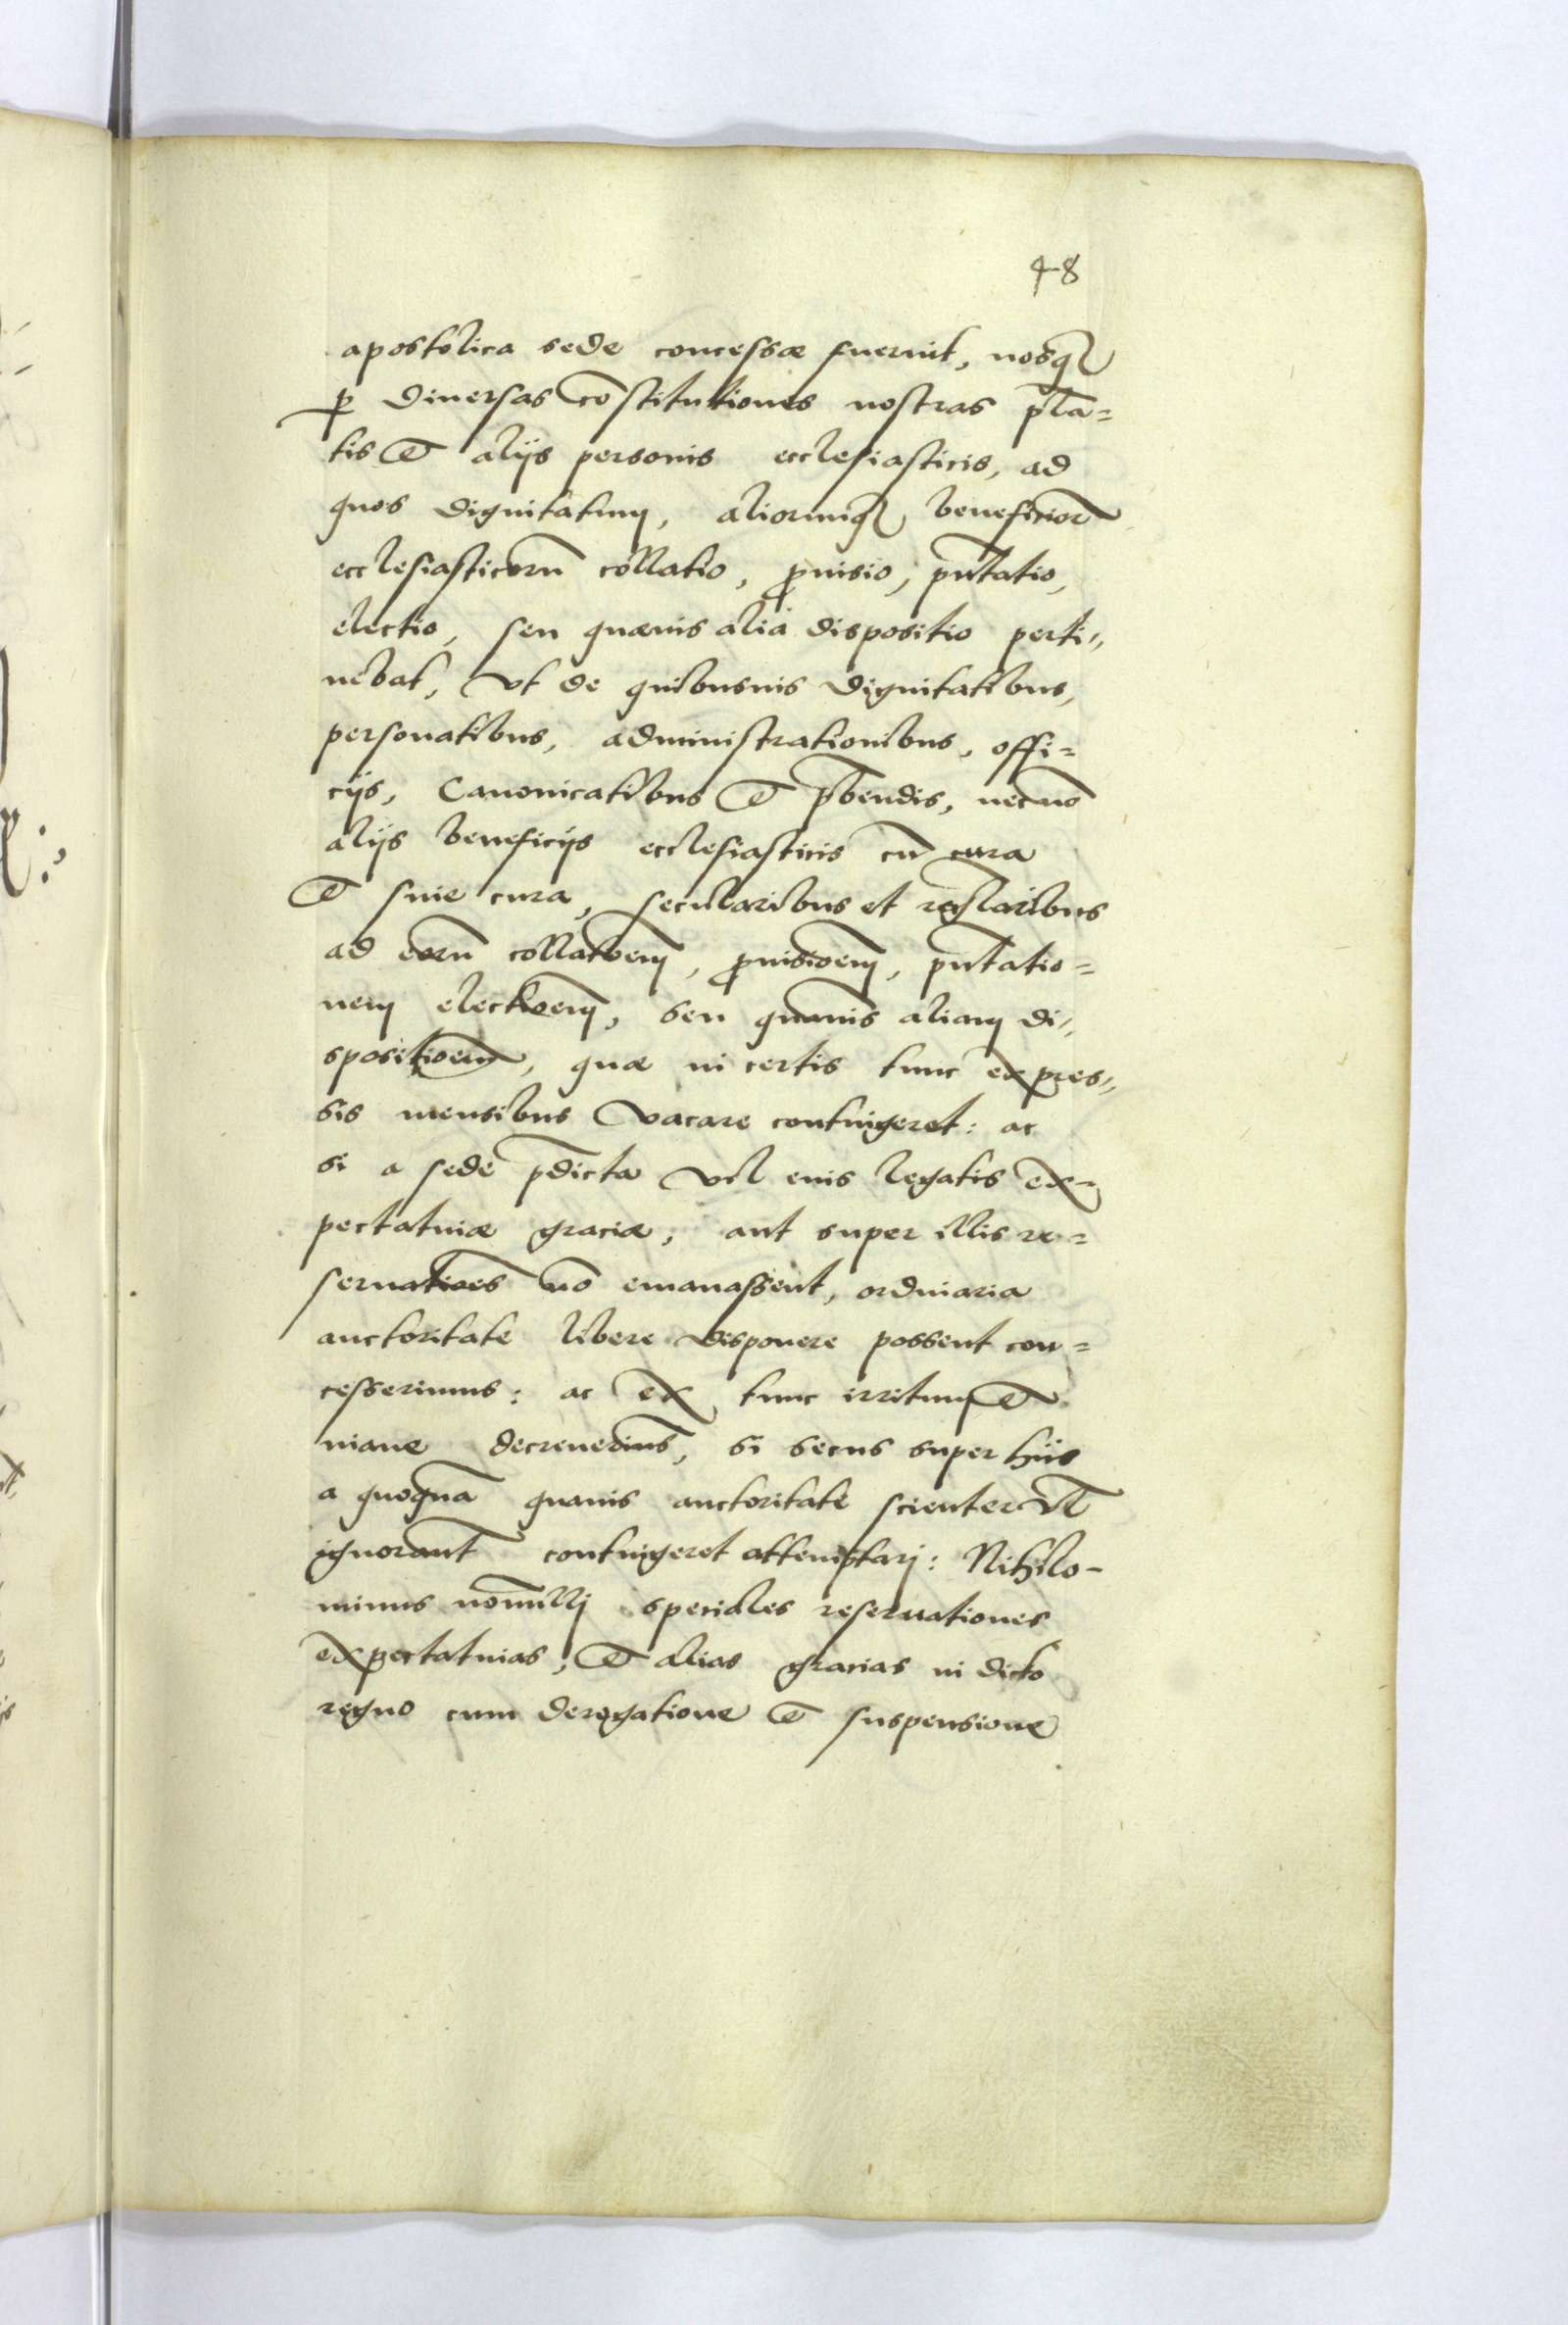 48
apostolica sede concessæ fuerint, nosq꜄
ꝑ diuersas cōstitutiones nostras p̄la=
tis & alijs personis ecclesiasticis, ad
quos dignitatum, aliorumq꜄ beneficiorꝫ
ecclesiasticorū collatio, ꝓuisio, pn̄tatio,
electio, seu quæuis alia dispositio perti„
nebat, vt de quibusuis dignitatibus,
personatibus, administrationibus, offi=
cijs, Canonicatibus & p̄bendis, necnō
alijs beneficijs ecclesiasticis cū cura
& sine cura, secularibus et reg̃laribus
ad eorū collatõem, ꝓuisiõem, pn̄tatio=
nem electiõem, seu quāuis aliam di„
spositioẽm, quæ in certis tunc expres„
sis mensibus vacare contingeret: ac
si a sede p̄dicta vel eius legatis ex„
pectatiuæ graciæ, aut super illis re=
seruatiões nō emanassent, ordinaria
auctoritate libere disponere possent con=
cesserimus: ac ex tunc irritum &
inane decreuerim̄s, si secus super hijs
a quoquā quauis auctoritate scienter vl̄
ignorant̄ contingeret attemptarj: Nihilo-
minus nōnullj speciales reseruationes
expectatiuas, & alias gracias in dicto
regno cum derogatione & suspensione